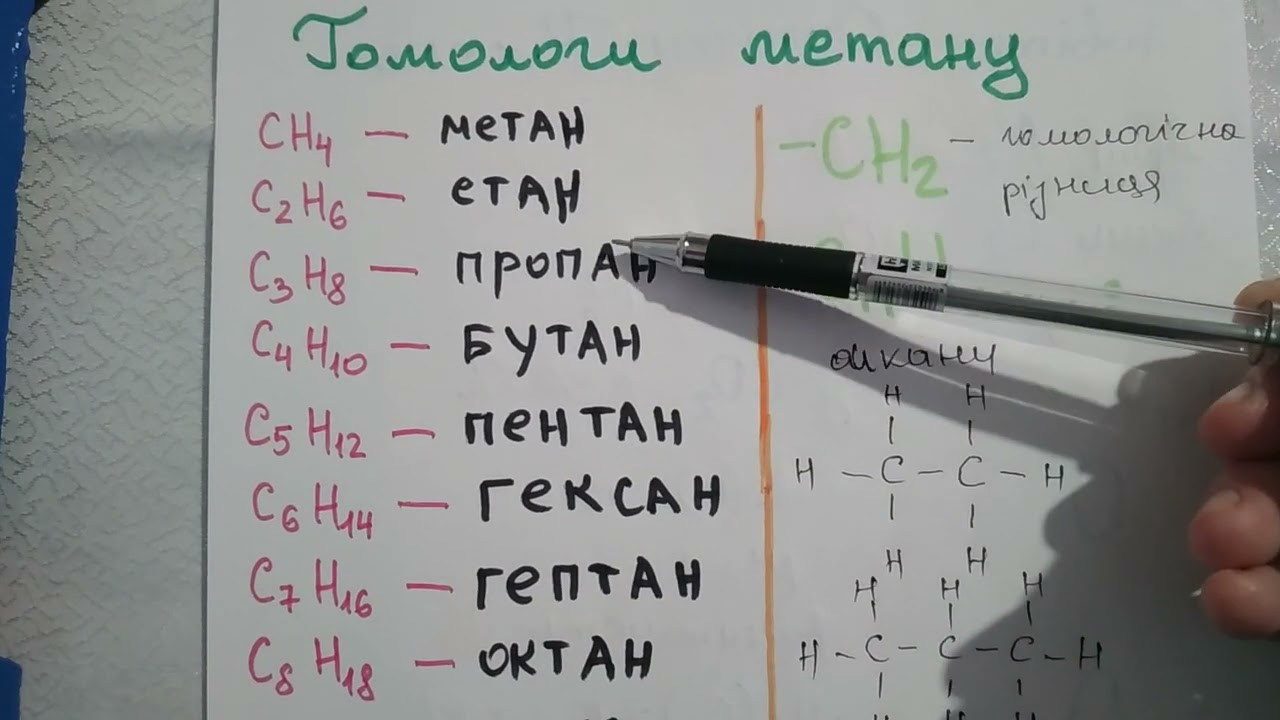 Гомологи метану
CH4 — метан
C2H6 — етан
C3H8 — пропан
C4H10 — бутан
C5H12 — пентан
C6H14 — гексан
C7H16 — гептан
C8H18 — октан
-CH2 — гомологічна
різниця
алкану
H H
H - C - C - H
H H
H H H
H - C - C - C - H